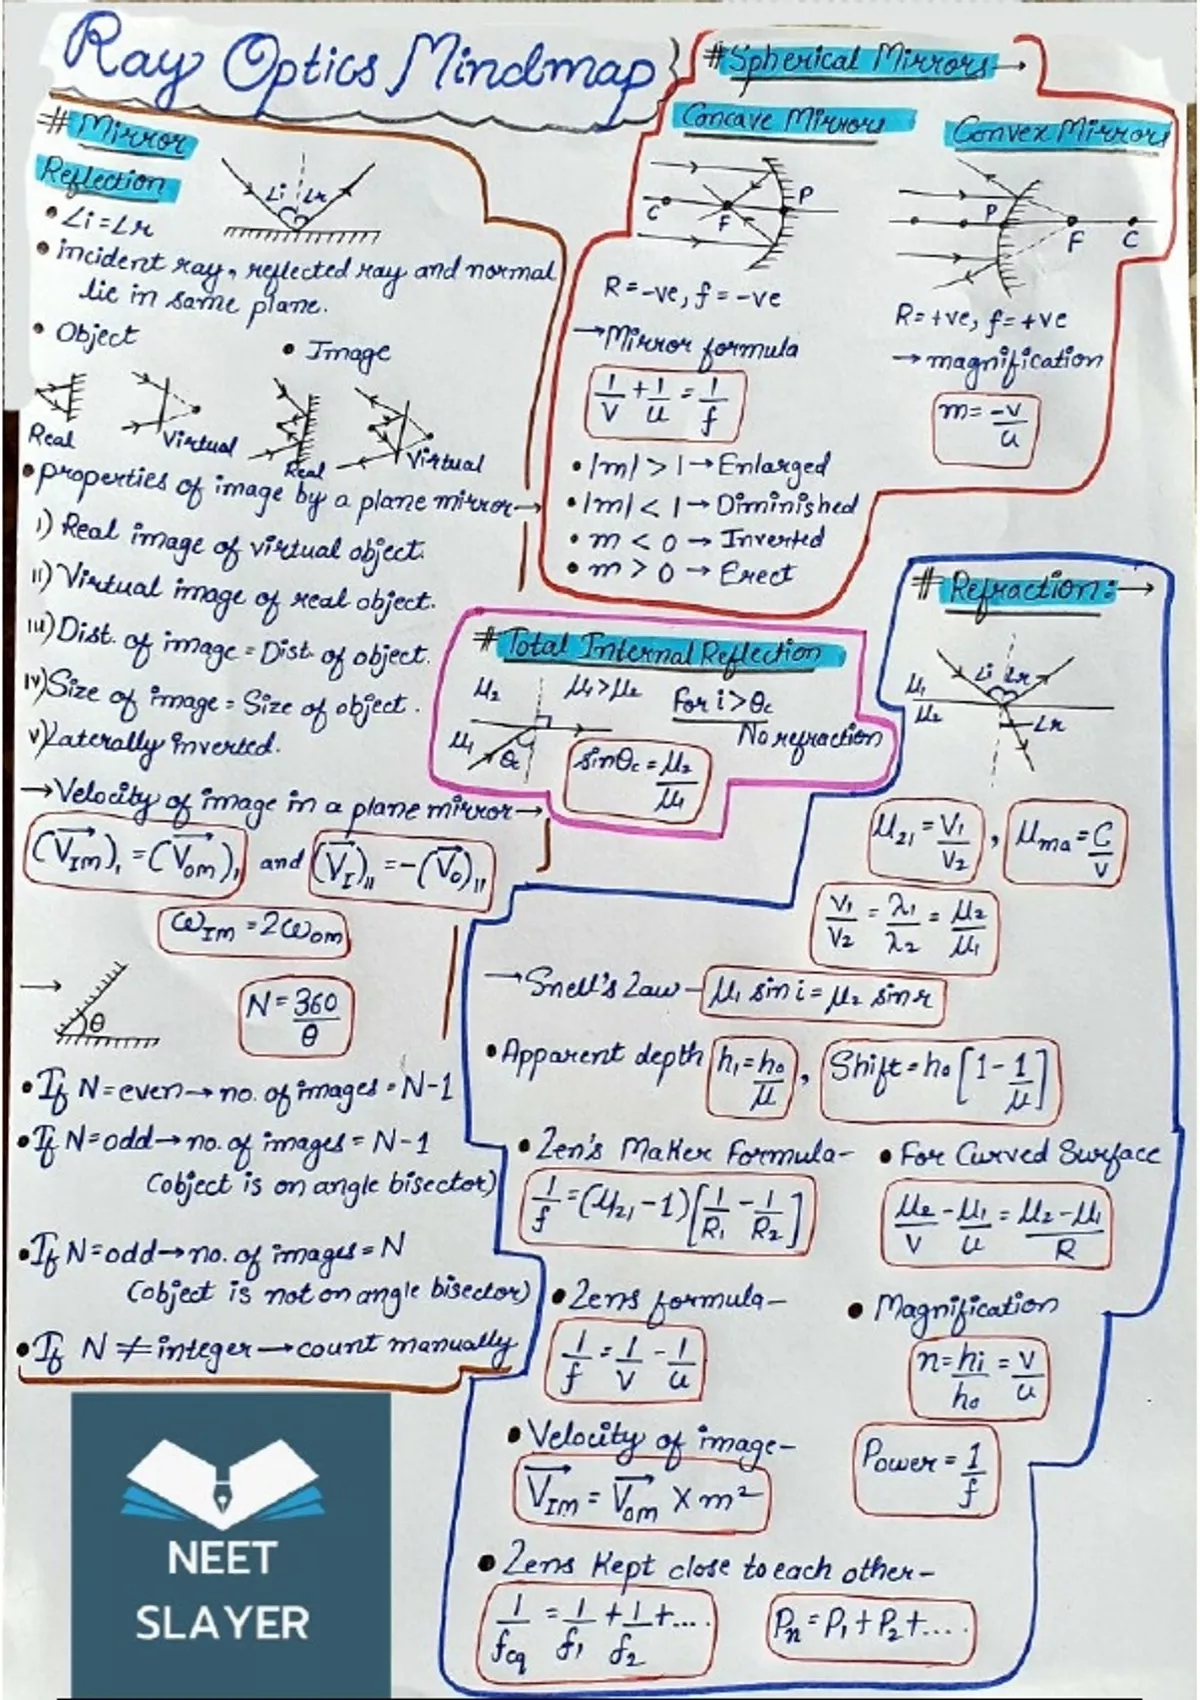 Ray Optics Mindmap
# Mirror
Reflection
∠i ∠r
• ∠i = ∠r
• incident ray, reflected ray and normal
lie in same plane.
• Object
• Image
Real
Virtual
Real
Virtual
• properties of image by a plane mirror→
i) Real image of virtual object.
ii) Virtual image of real object.
iii) Dist. of image = Dist. of object.
iv) Size of image = Size of object.
v) Laterally inverted.
→ Velocity of image in a plane mirror→
(V⃗Im)⊥ = (V⃗om)⊥ and (V⃗I)ıı = -(V⃗o)ıı
ωIm = 2ωom
→ θ
N = 360/θ
• If N = even → no. of images = N-1
• If N = odd → no. of images = N-1
(object is on angle bisector)
• If N = odd → no. of images = N
(object is not on angle bisector)
• If N ≠ integer → count manually
NEET
SLAYER
# Spherical Mirrors→
Concave Mirrors
C F P
R = -ve, f = -ve
→ Mirror formula
1/v + 1/u = 1/f
• |m| > 1 → Enlarged
• |m| < 1 → Diminished
• m < 0 → Inverted
• m > 0 → Erect
Convex Mirrors
P F C
R = +ve, f = +ve
→ magnification
m = -v/u
# Total Internal Reflection
μ2 μ1 > μ2 For i > θc
μ1 θc No refraction
sinθc = μ2/μ1
# Refraction:→
∠i ∠r
μ1
μ2
∠r
μ21 = V1/V2 , μma = C/V
V1/V2 = λ1/λ2 = μ2/μ1
→ Snell's Law - μ1 sin i = μ2 sin r
• Apparent depth hi = ho/μ , Shift = ho [1 - 1/μ]
• Len's Maker Formula-
1/f = (μ21 - 1)[1/R1 - 1/R2]
• For Curved Surface
μ2/V - μ1/u = μ2 - μ1/R
• Lens formula-
1/f = 1/V - 1/u
• Magnification
n = hi/ho = v/u
• Velocity of image-
V⃗Im = V⃗om × m²
Power = 1/f
• Lens Kept close to each other-
1/feq = 1/f1 + 1/f2 + ....
Pn = P1 + P2 + ....